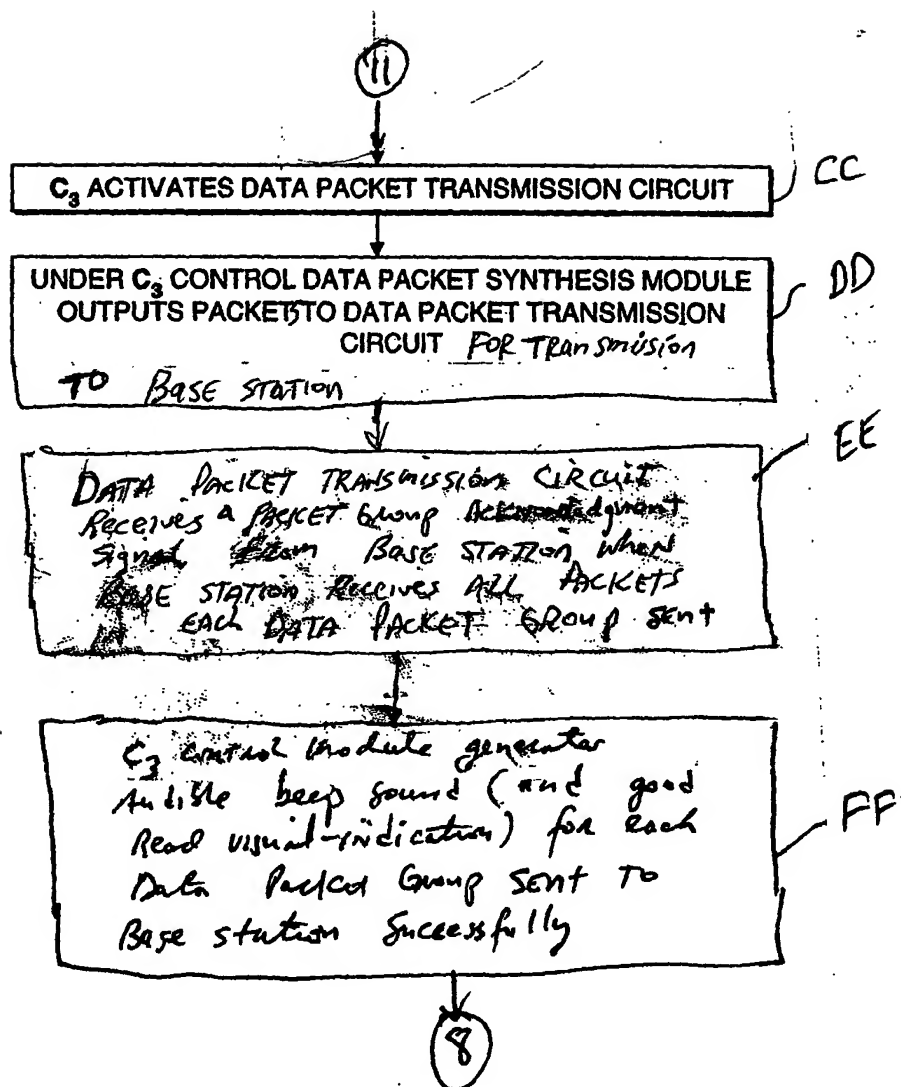 11
C3 ACTIVATES DATA PACKET TRANSMISSION CIRCUIT
CC
UNDER C3 CONTROL DATA PACKET SYNTHESIS MODULE
OUTPUTS PACKETS TO DATA PACKET TRANSMISSION
CIRCUIT FOR TRansmision
TO BaSE STATION
DD
DATA PACKET TRANSMISSION CIRCUIT
Receives a PACKET Group Acknowledgment
Signal From BASE STATION when
BASE STATION Receives ALL PACKETS
EACH DATA PACKET GROUP Sent
EE
C3 control module generates
Audible beep sound (and good
Read visual-indication) for each
Data Packet Group SENT TO
Base station Successfully
FF
8